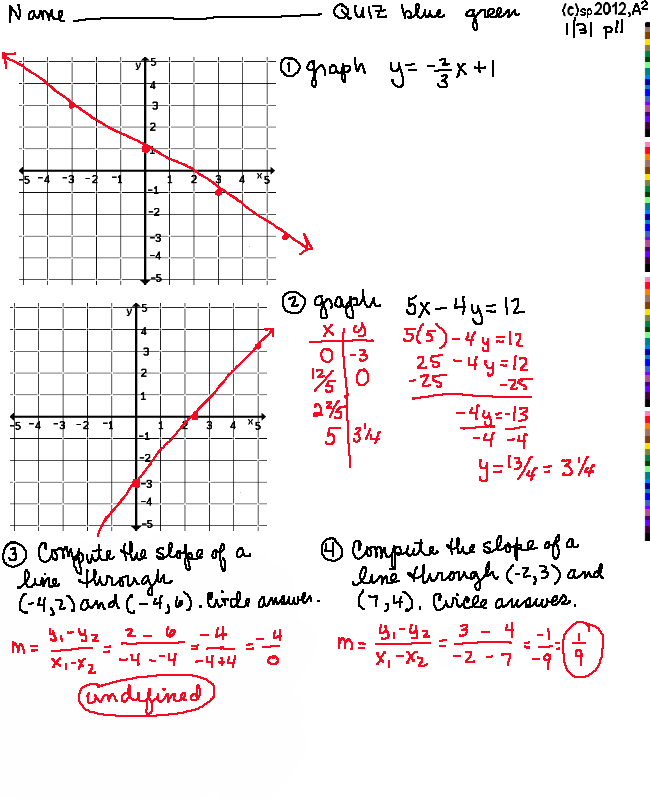 Name QUIZ blue green (c)sp2012,A²
1/31 p11
① graph y = -2/3 x + 1
y 5
4
3
2
1
-5 -4 -3 -2 -1 1 2 3 4 x 5
-1
-2
-3
-4
-5
② graph 5x - 4y = 12
x | y
0 | -3
12/5 | 0
2 2/5
5 | 3 1/4
5(5) - 4y = 12
25 - 4y = 12
-25 -25
-4y = -13
-4 -4
y = 13/4 = 3 1/4
y 5
4
3
2
1
-5 -4 -3 -2 -1 1 2 3 4 x 5
-1
-2
-3
-4
-5
③ Compute the slope of a
line through
(-4,2) and (-4,6). Circle answer.
m = y₁-y₂/x₁-x₂ = 2 - 6/-4 - -4 = -4/-4+4 = -4/0
undefined
④ Compute the slope of a
line through (-2,3) and
(7,4). Circle answer.
m = y₁-y₂/x₁-x₂ = 3 - 4/-2 - 7 = -1/-9 = 1/9